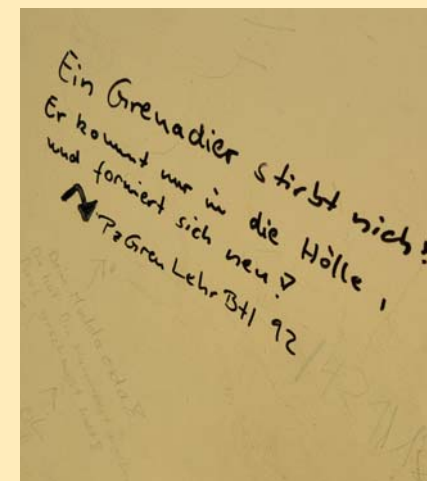 Ein Grenadier stirbt nich!
Er kommt nur in die Hölle,
und formiert sich neu!
PzGren Lehr Btl 92